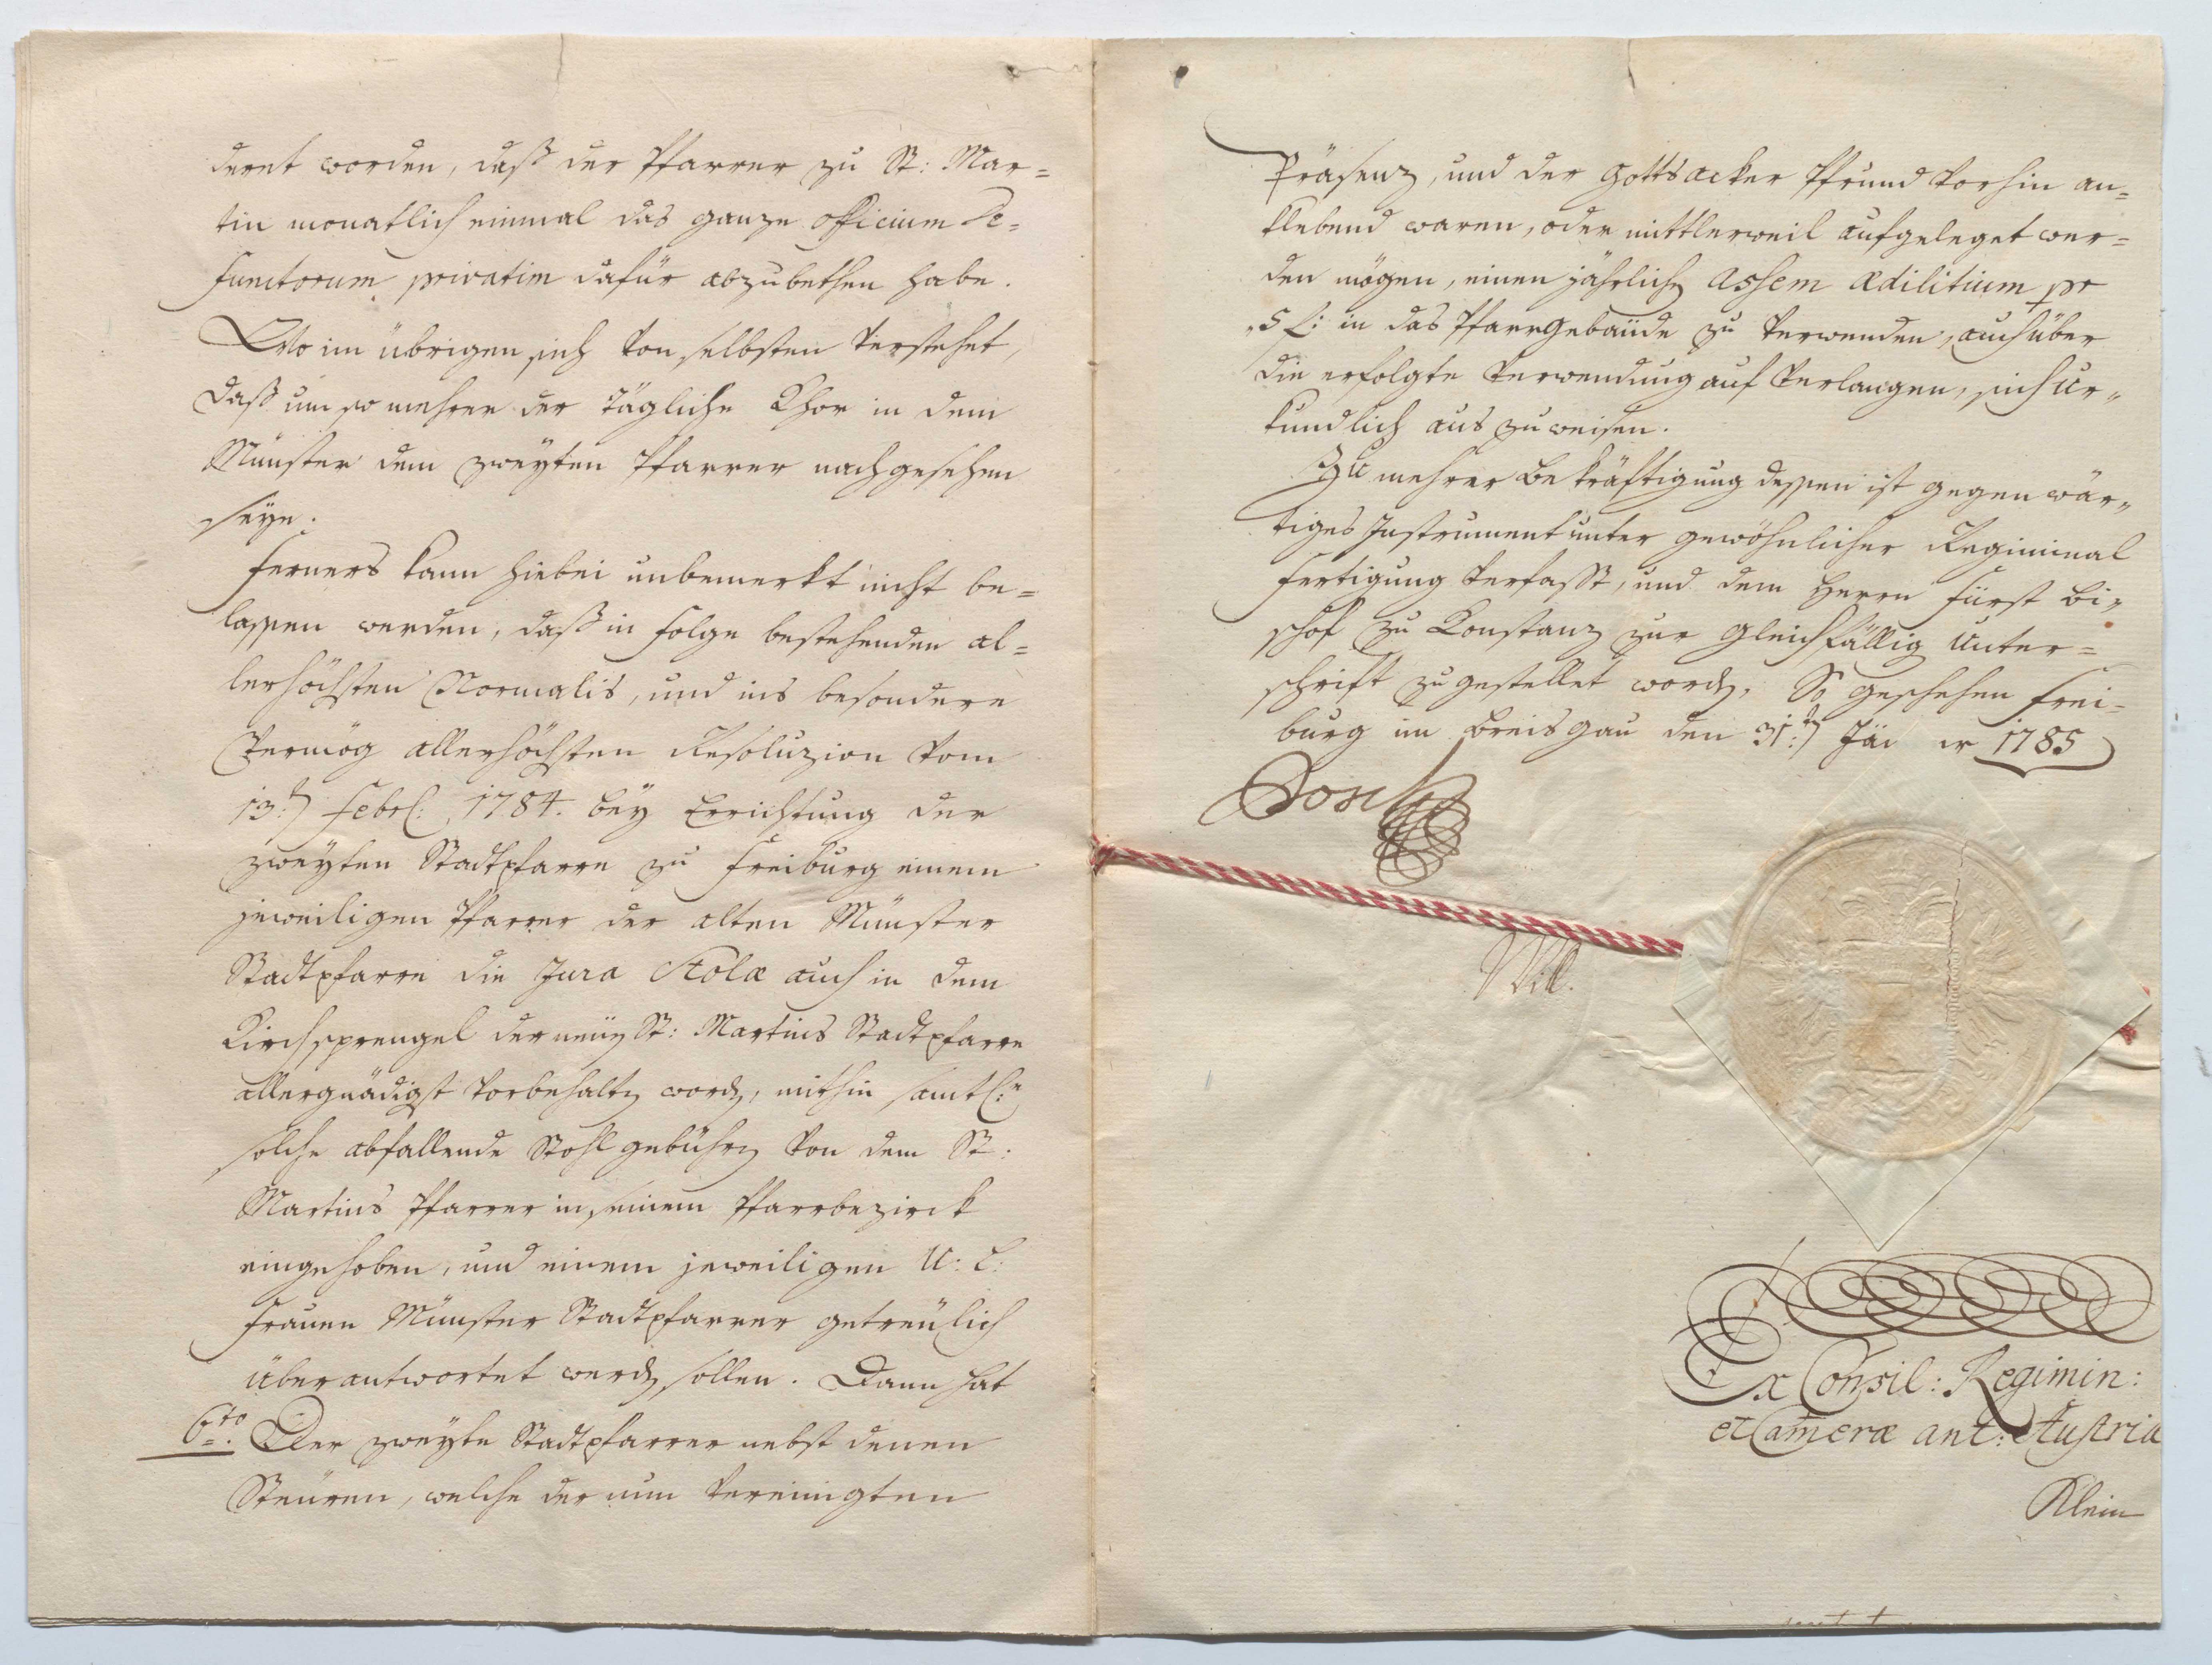 deret worden, daß der Pfarrer zu St: Mar=
tin monatlich einmal das ganze officium De=
functorum privatim dafür abzubethen habe.
Wo im übrigen sich von selbsten verstehet,
daß um so mehrer der tägliche Chor in dem
Münster dem zweyten Pfarrer nachgesehen
seye.
Ferners kann hiebei unbemerkt nicht be=
lassen werden, daß in Folge bestehenden al=
lerhöchsten Normalis, und ins besondere
Vermög allerhöchsten Resoluzion vom
13:t Febrl: 1784. bey Errichtung der
zweyten Stadtpfarre zu Freiburg einem
jeweiligen Pfarrer der alten Münster
Stadtpfarre die Jura Stolæ auch in dem
Kirchsprengel der neuen St: Martins Stadtpfarre
allergnädigst vorbehalten worden, mithin samtl:e
solche abfallende Stohlgebühren von dem St:
Martins Pfarrer in seinem Pfarrbezirck
eingehoben, und einem jeweiligen U: L:
Frauen Münster Stadtpfarrer getreulich
überantwortet werden sollen. Dann hat
6to. Der zweyte Stadtpfarrer nebst denen
Steuren, welche der nun vereinigten
Präsenz, und der Gottsacker Pfrund vorhin an=
klebend waren, oder mittlerweil aufgeleget wer=
den mögen, einen jährlichen Assem Ædilitium pr
„5 f: in das Pfarrgebäude zu verwenden, auch über
die erfolgte Verwendung auf Verlangen, sich ur„
kundlich auszuweisen.
Zu mehrer Bekräftigung dessen ist gegenwär„
tiges Instrument unter gewöhnlicher Regiminal
Fertigung verfasst, und dem Herrn Fürst Bi„
schof zu Konstanz zur gleichfällig Unter=
schrift zugestellet worden. So geschehen Frei=
burg im Breisgau den 31:t 1785
Will.
Ex Consil: Regimin:
et Cameræ ant: Austria
Klein